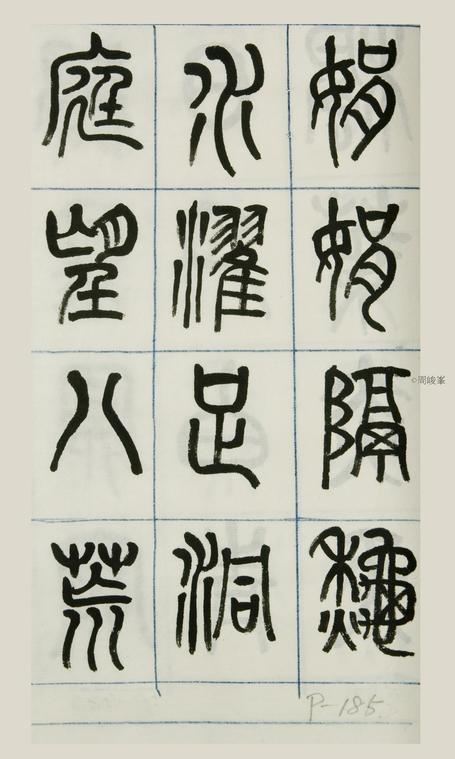 娟娟隔龝
水濯足洞
庭望八荒
P-185
©周峻峯